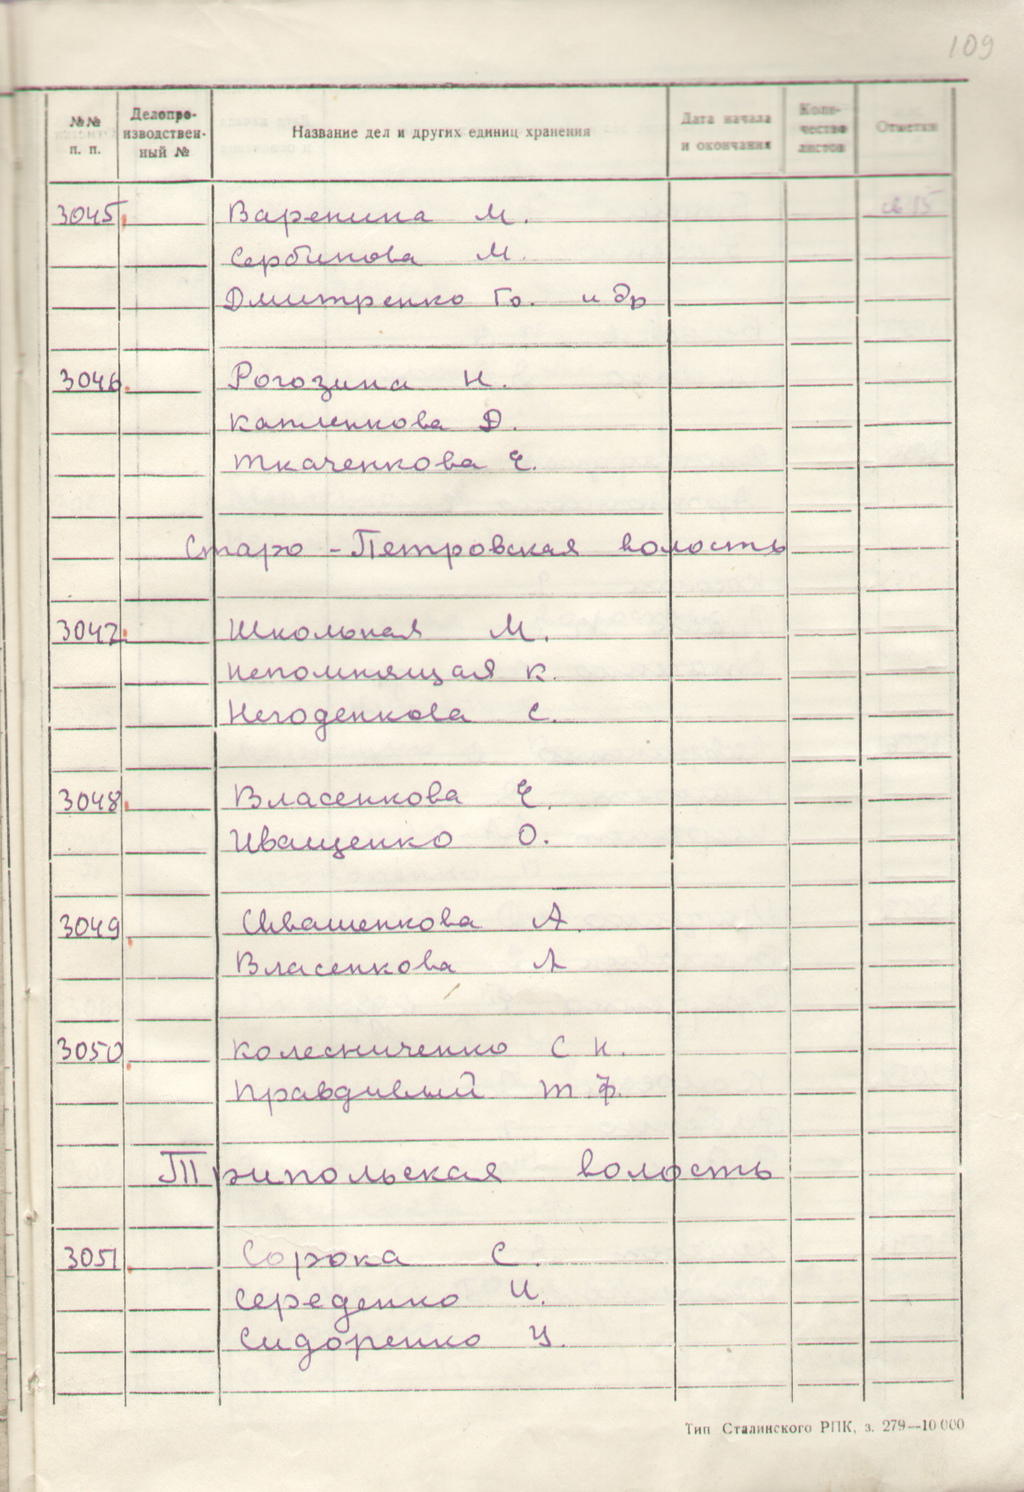 109
№№ п. п.
Делопро-изводствен-ный №
Название дел и других единиц хранения
Дата начала и окончания
Коли-чество листов
Отметки
3045. Варепина М. св 15
Сербинова М.
Дмитренко Гр. и др
3046. Рогозина Н.
Капленкова Д.
Ткаченкова Е.
Старо-Петровская волость
3047. Школьная М.
Непомнящая К.
Негоденкова С.
3048. Власенкова Е.
Иващенко О.
3049. Ивашенкова А.
Власенкова А
3050. Колесниченко С Н.
Правдивый Т Ф.
Трипольская волость
3051. Сорока С.
Середенко И.
Сидоренко У.
Тип Сталинского РПК, з. 279—10 000